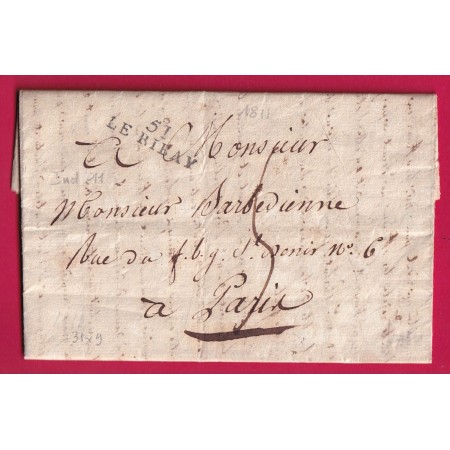 1811
57
LE RIBAY
A Monsieur
Ind 11
Monsieur Barbedienne
Rue du f. b. g. St. Denir no. 6
5
a Paris
31x9